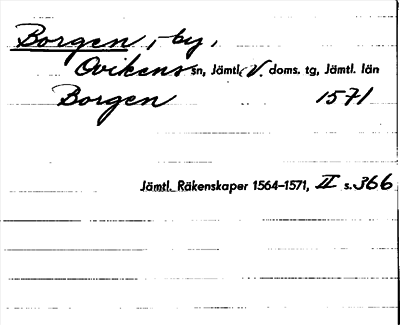 Borgen, -by,
Ovikens sn, Jämtl. V. doms. tg, Jämtl. län
Borgen 1571
Jämtl. Räkenskaper 1564-1571, II s. 366